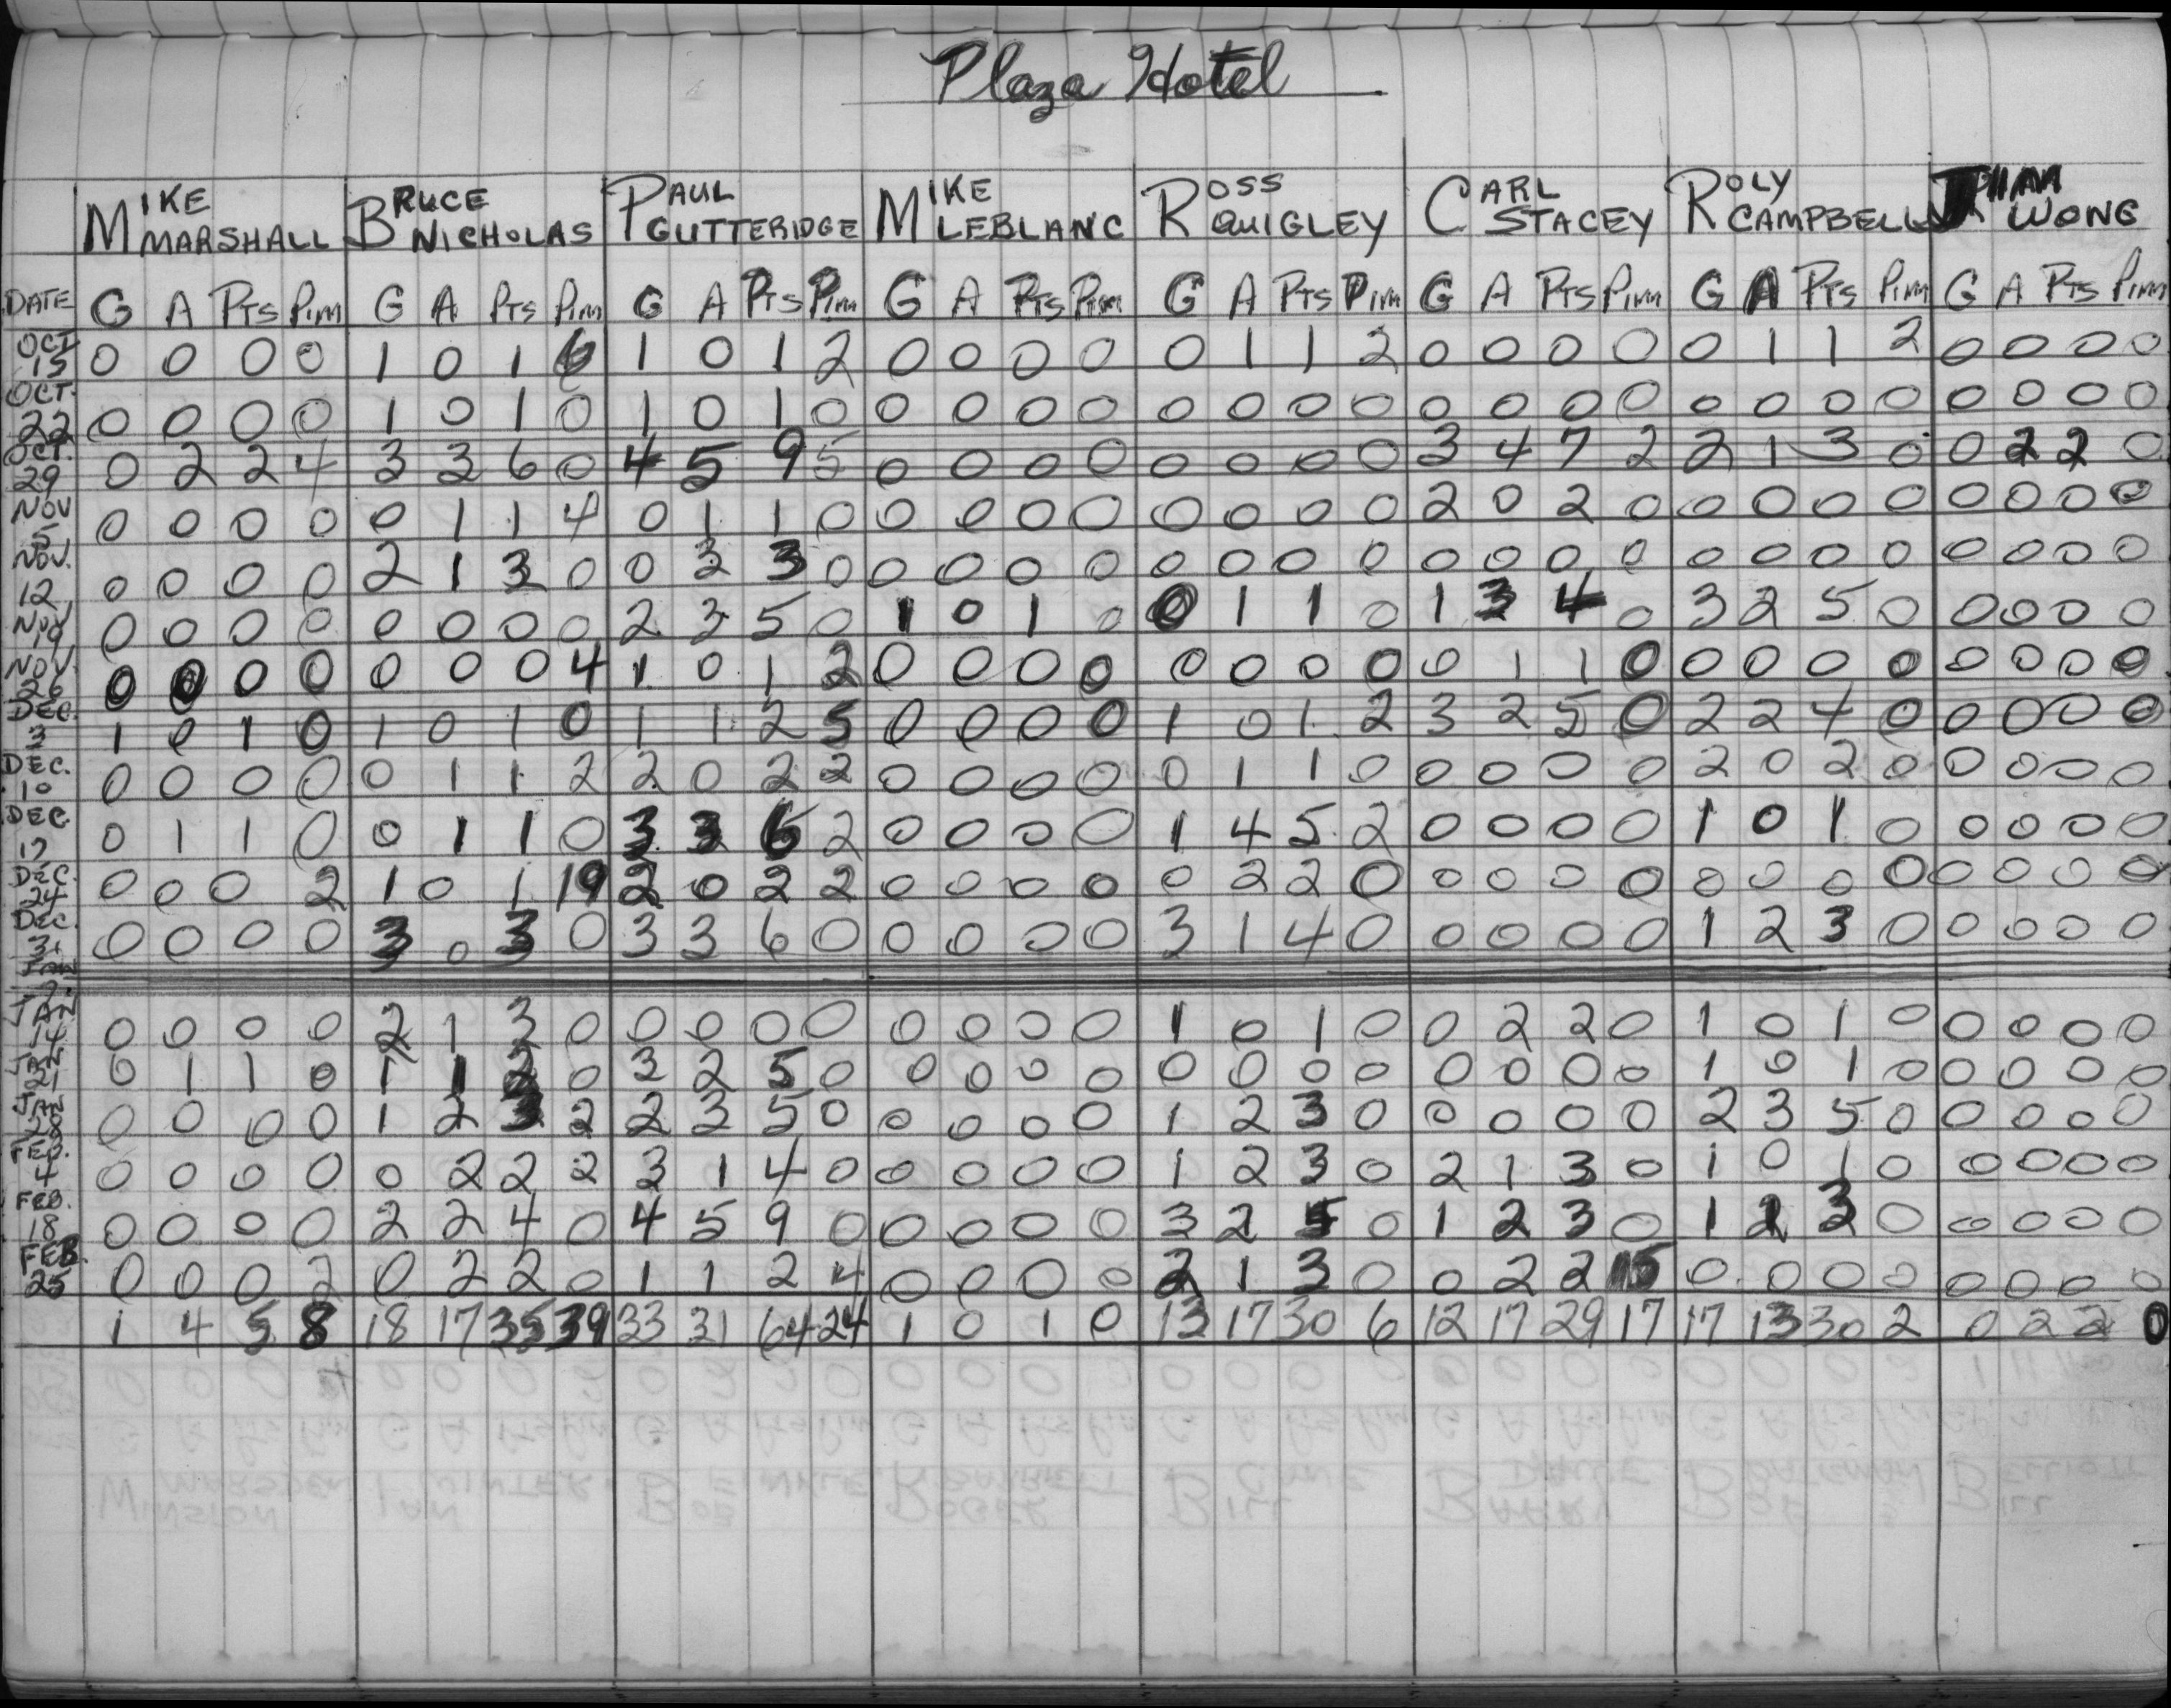 Plaza Hotel
MIKE MARSHALL BRUCE NICHOLAS PAUL GUTTERIDGE MIKE LEBLANC ROSS QUIGLEY CARL STACEY ROLY CAMPBELL WONG
DATE G A PTS PIM G A PTS PIM G A PTS PIM G A PTS PIM G A PTS PIM G A PTS PIM G A PTS PIM G A PTS PIM
OCT 15 0 0 0 0 1 0 1 6 1 0 1 2 0 0 0 0 0 1 1 2 0 0 0 0 0 1 1 2 0 0 0 0
OCT. 22 0 0 0 0 1 0 1 0 1 0 1 0 0 0 0 0 0 0 0 0 0 0 0 0 0 0 0 0 0 0 0 0
OCT. 29 0 2 2 4 3 3 6 0 4 5 9 5 0 0 0 0 0 0 0 0 3 4 7 2 2 1 3 0 0 2 2 0
NOV 5 0 0 0 0 0 1 1 4 0 1 1 0 0 0 0 0 0 0 0 0 2 0 2 0 0 0 0 0 0 0 0 0
NOV. 12 0 0 0 0 2 1 3 0 0 3 3 0 0 0 0 0 0 0 0 0 0 0 0 0 0 0 0 0 0 0 0 0
NOV 19 0 0 0 0 0 0 0 0 2 3 5 0 1 0 1 0 0 1 1 0 1 3 4 0 3 2 5 0 0 0 0 0
NOV. 26 0 0 0 0 0 0 0 4 1 0 1 2 0 0 0 0 0 0 0 0 0 1 1 0 0 0 0 0 0 0 0 0
DEC. 3 1 0 1 0 1 0 1 0 1 1 2 5 0 0 0 0 1 0 1 2 3 2 5 0 2 2 4 0 0 0 0 0
DEC. 10 0 0 0 0 0 1 1 2 2 0 2 2 0 0 0 0 0 1 1 0 0 0 0 0 2 0 2 0 0 0 0 0
DEC. 17 0 1 1 0 0 1 1 0 3 3 6 2 0 0 0 0 1 4 5 2 0 0 0 0 1 0 1 0 0 0 0 0
DEC. 24 0 0 0 2 1 0 1 19 2 0 2 2 0 0 0 0 0 2 2 0 0 0 0 0 0 0 0 0 0 0 0 0
DEC. 31 0 0 0 0 3 0 3 0 3 3 6 0 0 0 0 0 3 1 4 0 0 0 0 0 1 2 3 0 0 0 0 0
JAN 7
JAN 14 0 0 0 0 2 1 3 0 0 0 0 0 0 0 0 0 1 0 1 0 0 2 2 0 1 0 1 0 0 0 0 0
JAN 21 0 1 1 0 1 1 2 0 3 2 5 0 0 0 0 0 0 0 0 0 0 0 0 0 1 0 1 0 0 0 0 0
JAN 28 0 0 0 0 1 2 3 2 2 3 5 0 0 0 0 0 1 2 3 0 0 0 0 0 2 3 5 0 0 0 0 0
FEB. 4 0 0 0 0 0 2 2 2 3 1 4 0 0 0 0 0 1 2 3 0 2 1 3 0 1 0 1 0 0 0 0 0
FEB. 18 0 0 0 0 2 2 4 0 4 5 9 0 0 0 0 0 3 2 5 0 1 2 3 0 1 2 3 0 0 0 0 0
FEB. 25 0 0 0 2 0 2 2 0 1 1 2 4 0 0 0 0 2 1 3 0 0 2 2 15 0 0 0 0 0 0 0 0
1 4 5 8 18 17 35 39 33 31 64 24 1 0 1 0 13 17 30 6 12 17 29 17 17 13 30 2 0 2 2 0